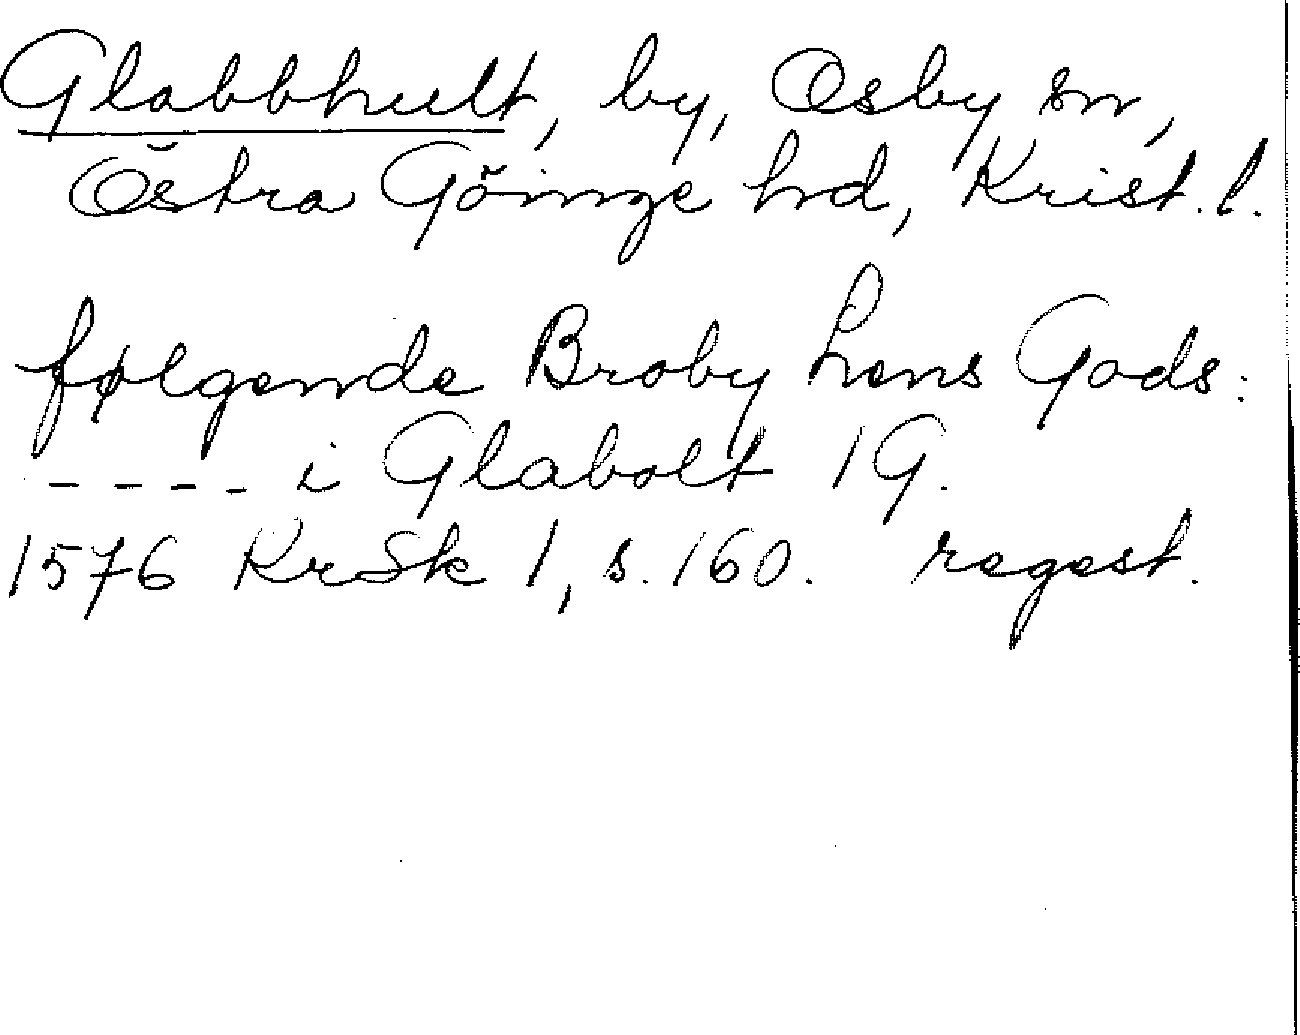 Glabbhult, by, Osby sn,
Östra Göinge hd, Krist. l.
følgende Broby Lens Gods:
- - - - i Glabolt 1 G.
1576 KrSk 1, s. 160. regest.